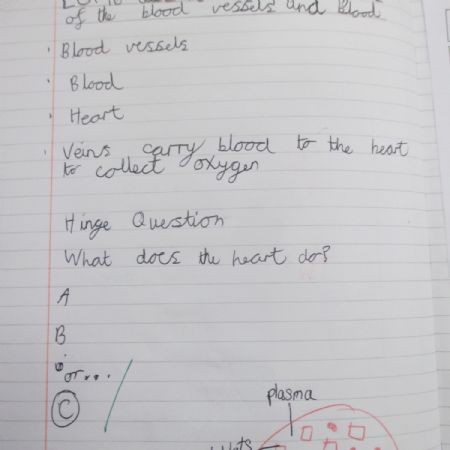 of the blood vessels and Blood
· Blood vessels
· Blood
· Heart
· Veins carry blood to the heart
to collect oxygen
Hinge Question
What does the heart do?
A
B
or...
C
plasma